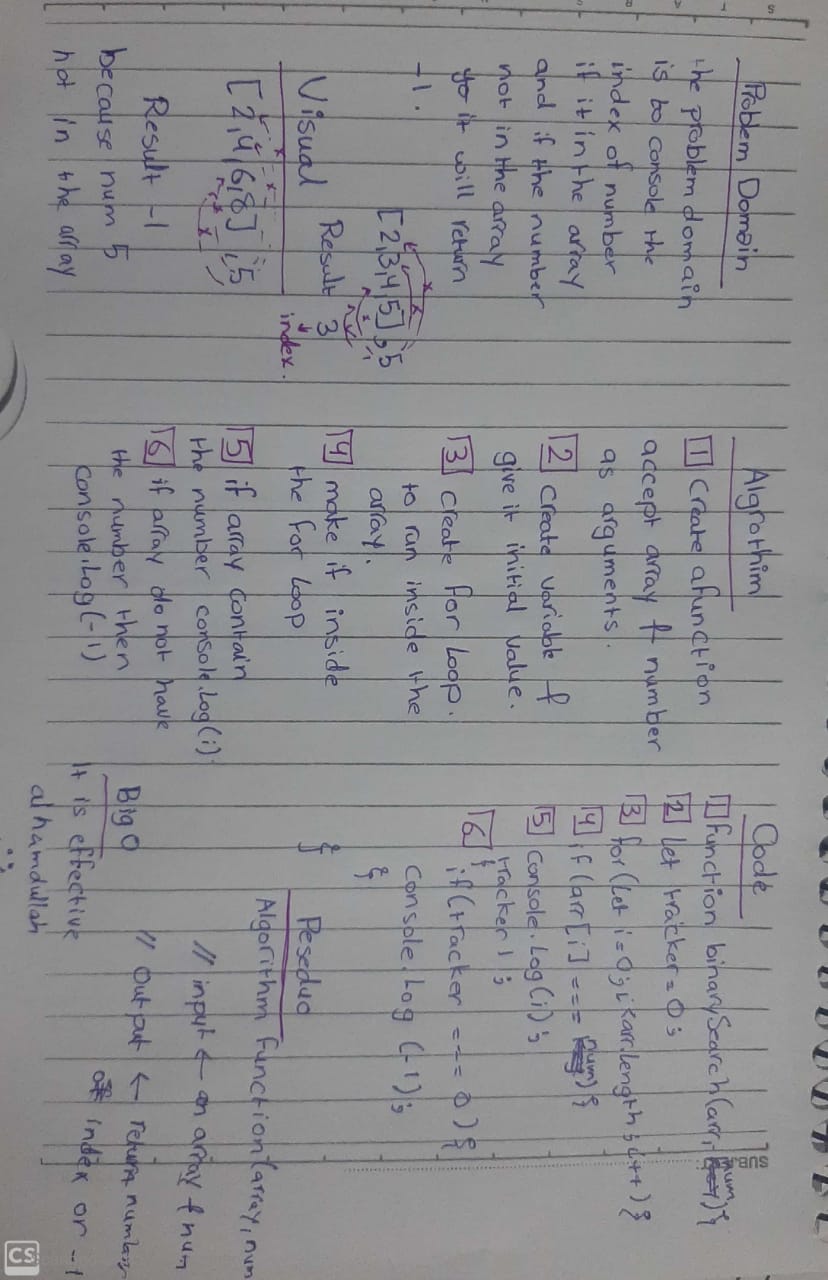 Problem Domain
the problem domain
is to console the
index of number
if it in the array
and if the number
not in the array
so it will return
-1.
Visual
[2,3,4,5],5
Result 3
index.
[2,4,6,8],5
Result -1
because num 5
not in the array
Algrothim
1 Create a function
accept array & number
as arguments.
2 Create variable &
give it initial value.
3 create for loop.
to run inside the
array.
4 make if inside
the for loop
5 if array contain
the number console.log(i).
6 if array do not have
the number then
console.log(-1)
Code
1 function binarySearch(arr, num){
2 let tracker = 0;
3 for(let i=0; i<arr.length; i++){
4 if(arr[i] === num){
5 console.log(i);
tracker 1;
}
6 if(tracker === 0){
console.log(-1);
}
}
Peseduo
Algorithm function(array, num
// input ← an array & num
// Output ← return number
of index or -1
Big O
It is effective
alhamdullah
SUB
CS